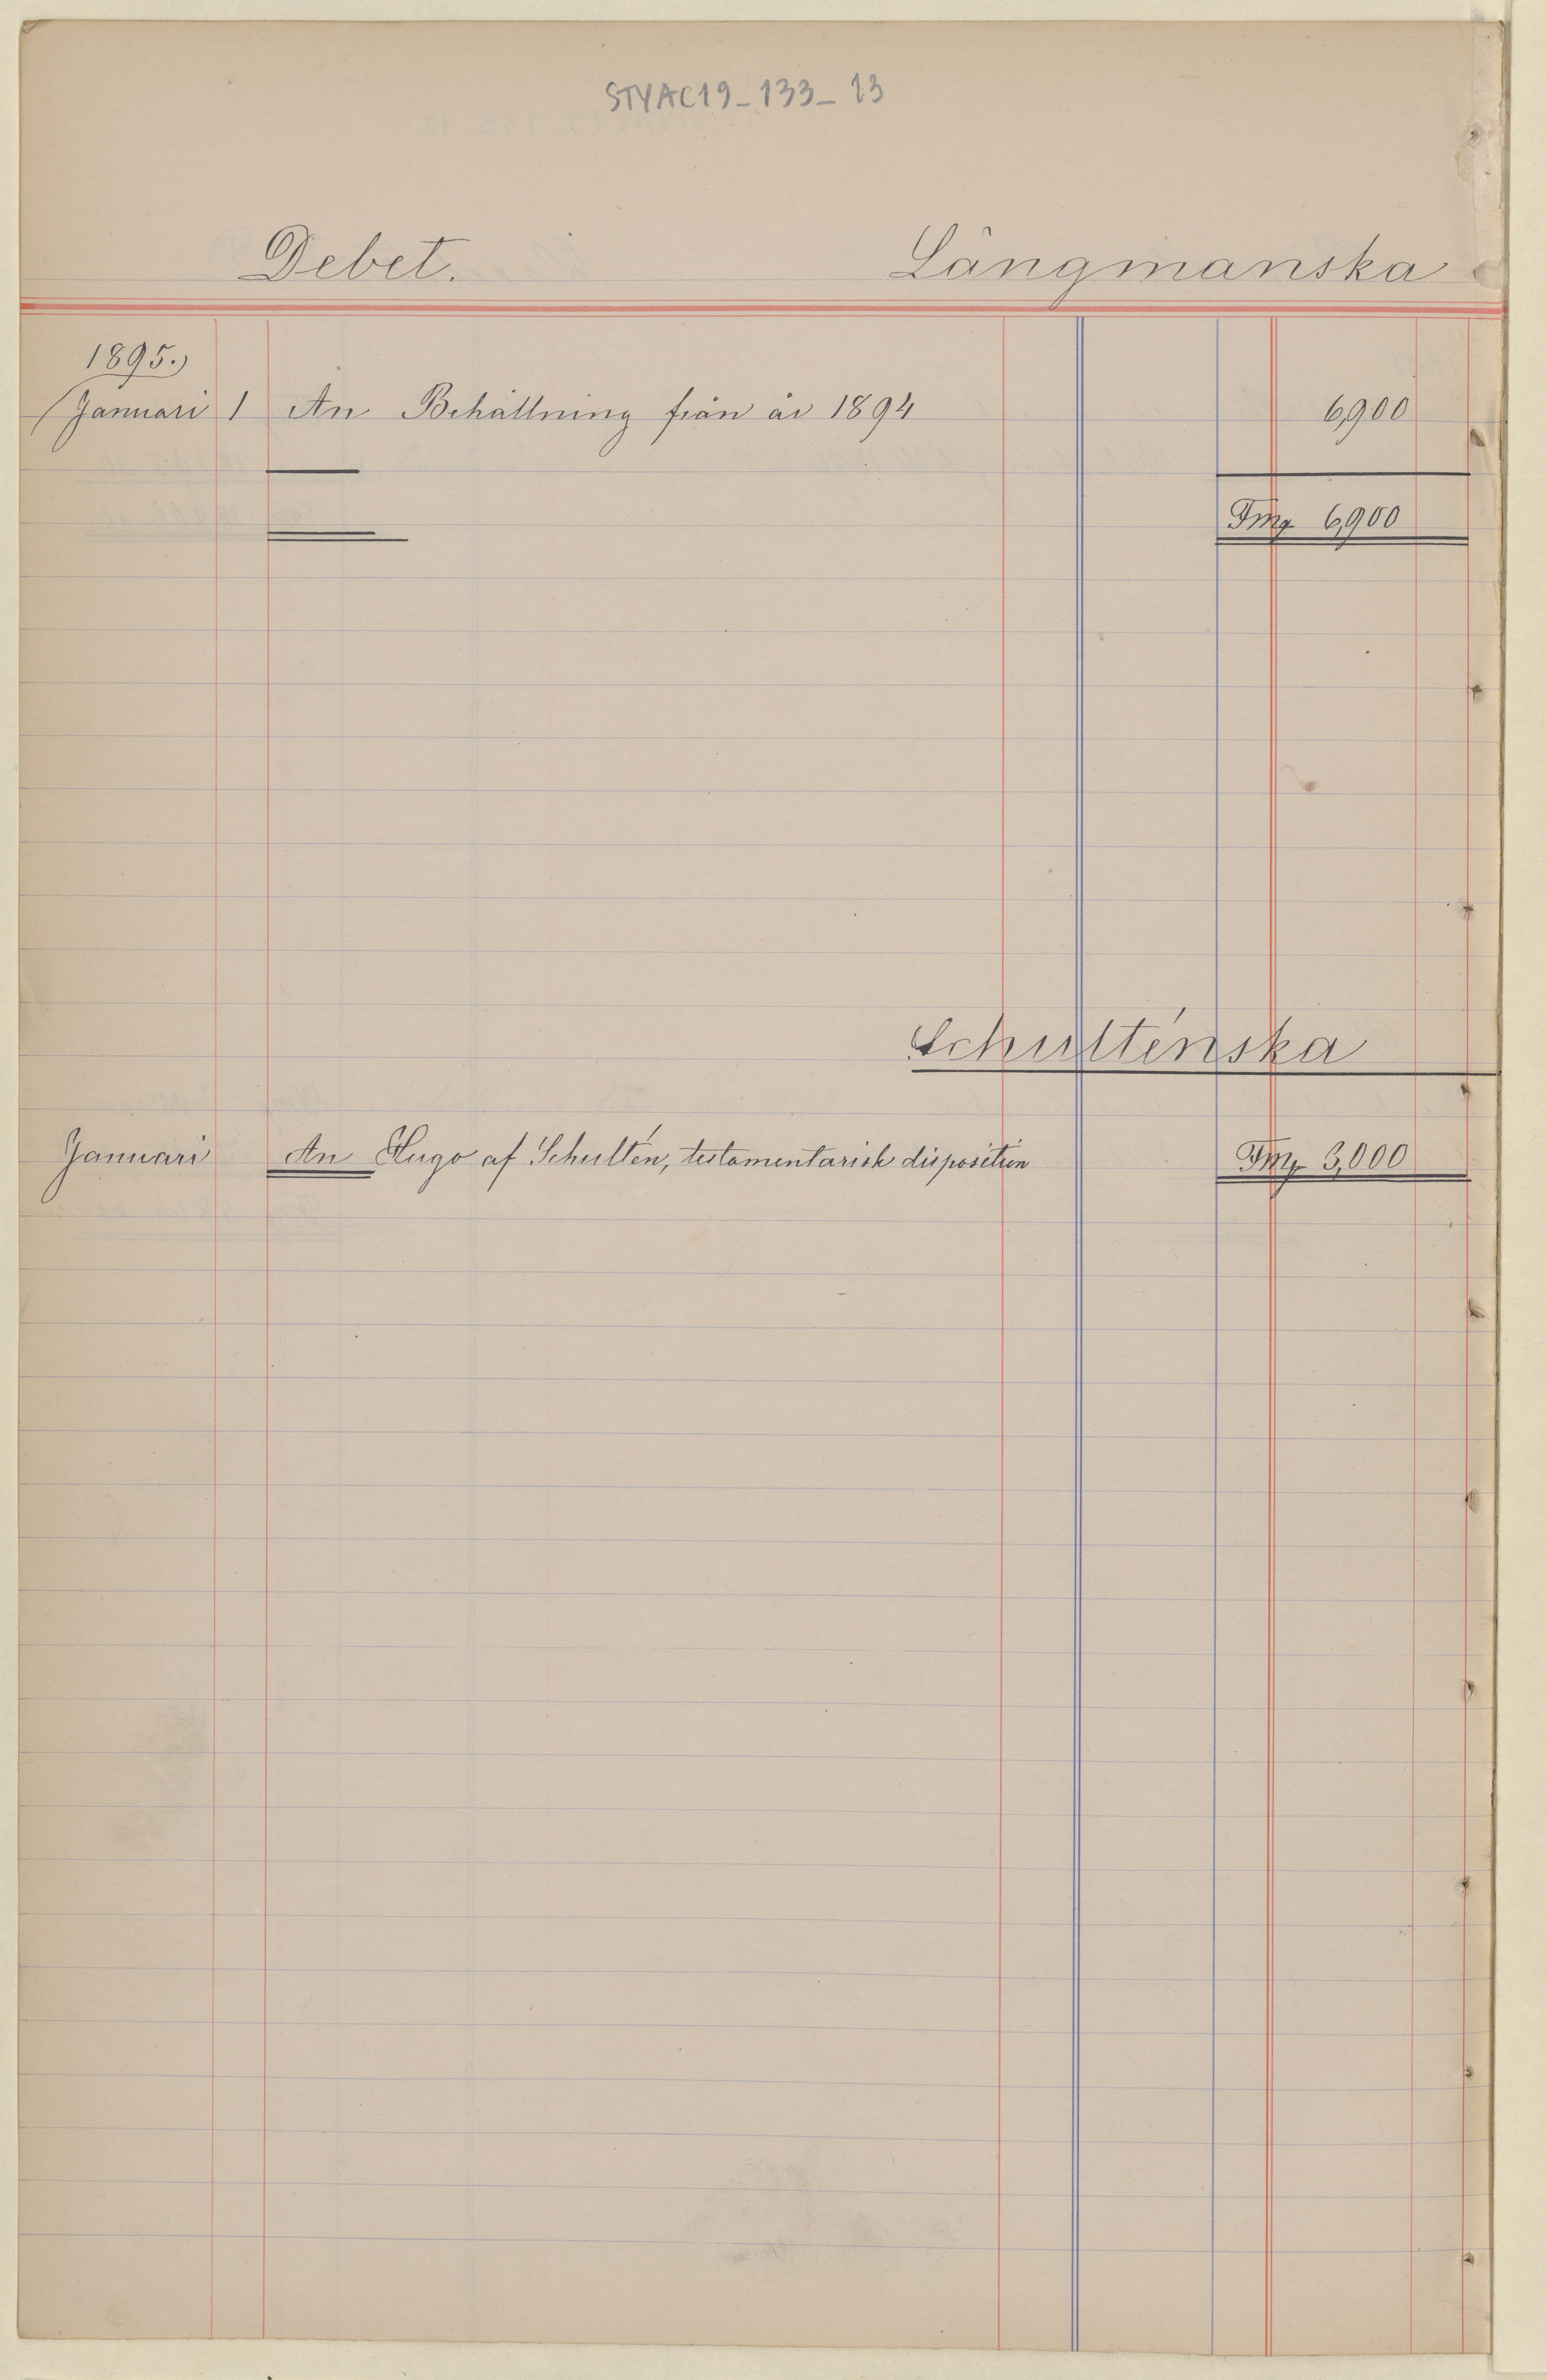 STYAC19_133_13
Debet. Längmanska
1895.
Januari 1 An Behållning från år 1894 6,900
Fmg 6,900
Schulténska
Januari An Hugo af Schultén, testamentarisk disposition Fmg 3,000